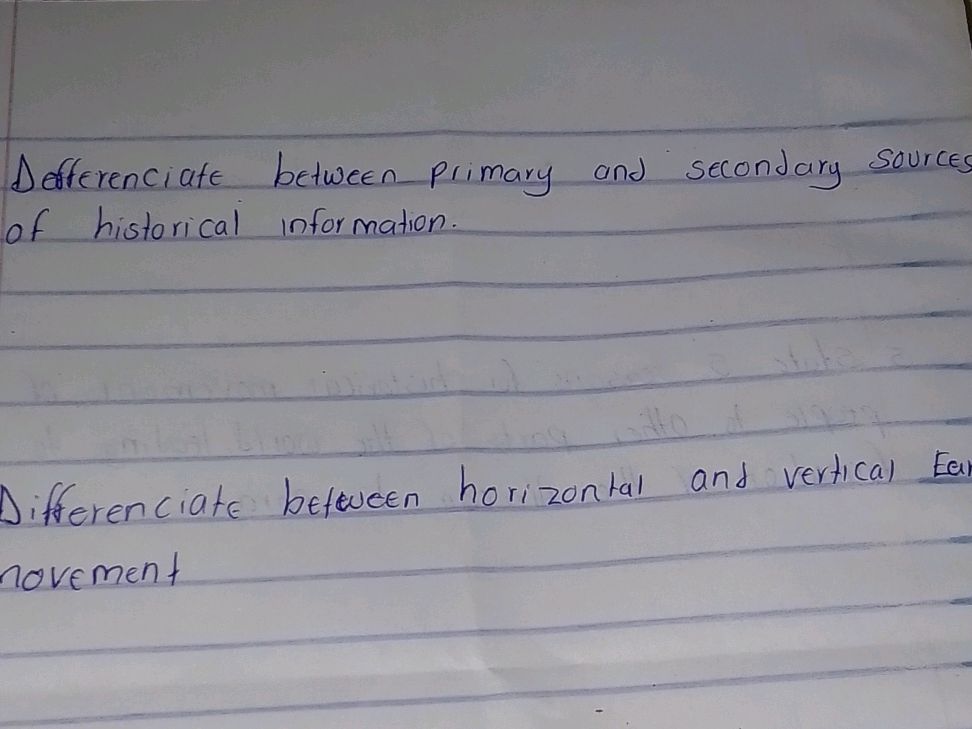 Defferenciate between primary and secondary sources
of historical information.
Differenciate between horizontal and vertical Ear
movement